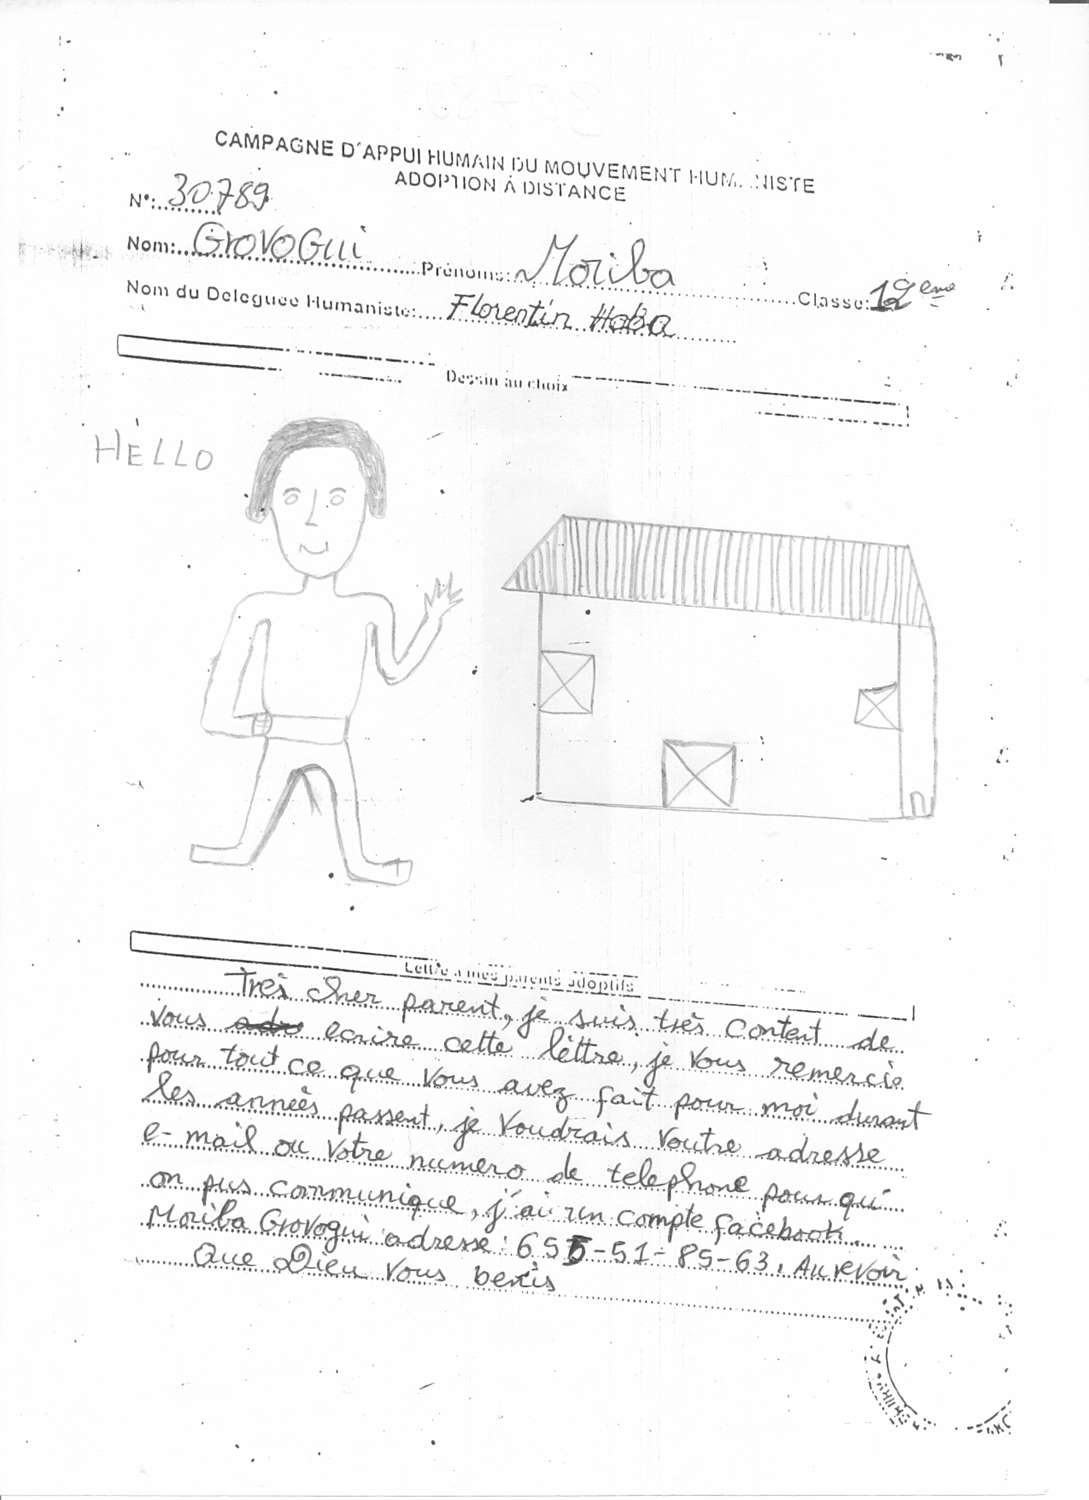 CAMPAGNE D'APPUI HUMAIN DU MOUVEMENT HUMANISTE
ADOPTION À DISTANCE
N°: 30789
Nom: GROVOGUI Prénoms: Moriba Classe: 12eme
Nom du Deleguee Humaniste: Florentin Haba
Dessin au choix
HELLO
Lettre a mes parents adoptifs
Très cher parent, je suis très content de
vous ecrire cette lèttre, je vous remercie
pour tout ce que vous avez fait pour moi durant
les années passent, je voudrais voutre adresse
e-mail ou votre numero de telephone pour qu'
on pus communique, j'ai un compte facebook.
Moriba Grovogui adresse: 655-51-85-63. Au revoir
Que Dieu vous benis